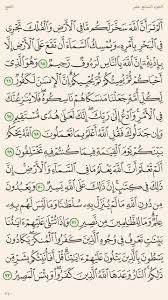 الحج الجزء السابع عشر
أَلَمْ تَرَ أَنَّ ٱللَّهَ سَخَّرَ لَكُم مَّا فِى ٱلْأَرْضِ وَٱلْفُلْكَ تَجْرِى
فِى ٱلْبَحْرِ بِأَمْرِهِۦ وَيُمْسِكُ ٱلسَّمَآءَ أَن تَقَعَ عَلَى ٱلْأَرْضِ إِلَّا
بِإِذْنِهِۦٓ إِنَّ ٱللَّهَ بِٱلنَّاسِ لَرَءُوفٌ رَّحِيمٌ ٦٥ وَهُوَ ٱلَّذِىٓ
أَحْيَاكُمْ ثُمَّ يُمِيتُكُمْ ثُمَّ يُحْيِيكُمْ إِنَّ ٱلْإِنسَٰنَ لَكَفُورٌ ٦٦
لِّكُلِّ أُمَّةٍ جَعَلْنَا مَنسَكًا هُمْ نَاسِكُوهُ فَلَا يُنَٰزِعُنَّكَ
فِى ٱلْأَمْرِ وَٱدْعُ إِلَىٰ رَبِّكَ إِنَّكَ لَعَلَىٰ هُدًى مُّسْتَقِيمٍ ٦٧
وَإِن جَٰدَلُوكَ فَقُلِ ٱللَّهُ أَعْلَمُ بِمَا تَعْمَلُونَ ٦٨ ٱللَّهُ يَحْكُمُ
بَيْنَكُمْ يَوْمَ ٱلْقِيَٰمَةِ فِيمَا كُنتُمْ فِيهِ تَخْتَلِفُونَ ٦٩
أَلَمْ تَعْلَمْ أَنَّ ٱللَّهَ يَعْلَمُ مَا فِى ٱلسَّمَآءِ وَٱلْأَرْضِ
إِنَّ ذَٰلِكَ فِى كِتَٰبٍ إِنَّ ذَٰلِكَ عَلَى ٱللَّهِ يَسِيرٌ ٧٠ وَيَعْبُدُونَ
مِن دُونِ ٱللَّهِ مَا لَمْ يُنَزِّلْ بِهِۦ سُلْطَٰنًا وَمَا لَيْسَ لَهُم
بِهِۦ عِلْمٌ وَمَا لِلظَّٰلِمِينَ مِن نَّصِيرٍ ٧١ وَإِذَا تُتْلَىٰ عَلَيْهِمْ
ءَايَٰتُنَا بَيِّنَٰتٍ تَعْرِفُ فِى وُجُوهِ ٱلَّذِينَ كَفَرُوا۟ ٱلْمُنكَرَ يَكَادُونَ
يَسْطُونَ بِٱلَّذِينَ يَتْلُونَ عَلَيْهِمْ ءَايَٰتِنَا قُلْ أَفَأُنَبِّئُكُم بِشَرٍّ
مِّن ذَٰلِكُمُ ٱلنَّارُ وَعَدَهَا ٱللَّهُ ٱلَّذِينَ كَفَرُوا۟ وَبِئْسَ ٱلْمَصِيرُ ٧٢
٣٤٠